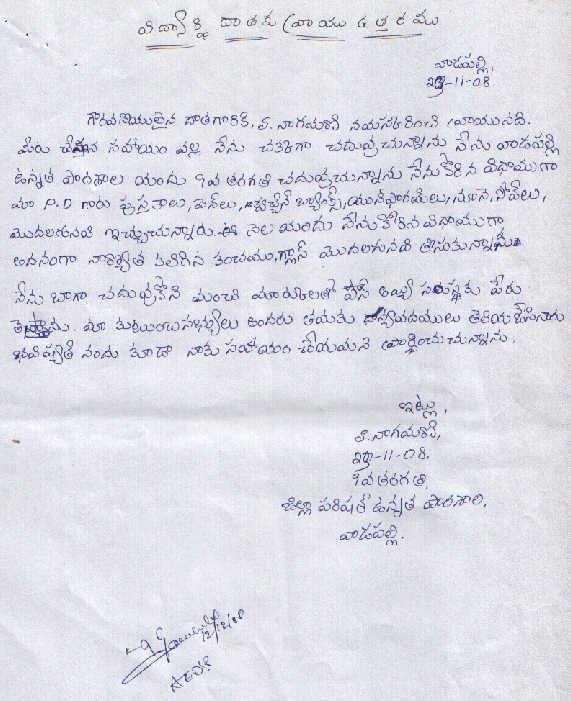 విద్యార్థి దాతకు వ్రాయు ఉత్తరము
వాడపల్లి,
23-11-08
గౌరవనీయులైన దాతగారికి, వి. నాగమణి నమస్కరించి వ్రాయునది.
మీరు చేసిన సహాయం వల్ల నేను చక్కగా చదువుచున్నాను నేను వాడపల్లి
ఉన్నత పాఠశాల యందు 9వ తరగతి చదువుచున్నాను నేను కోరిన విధముగా
మా P.D గారు పుస్తకాలు, పెన్‌లు, యూనిఫారములు, నూనె, సోప్‌లు,
మొదలగునవి ఇచ్చుచున్నారు. ఈ నెల యందు నేను కోరిన విధముగా
అదనంగా నాణ్యత కలిగిన కంచము, గ్లాస్ మొదలగునవి తీసుకున్నాను
నేను బాగా చదువుకొని మంచి మార్కులతో పాస్ అయ్యి సంస్థకు పేరు
తెస్తాను. మా కుటుంబసభ్యులు అందరు తమకు ధన్యవాదములు తెలియజేసినారు
భవిష్యత్ నందు కూడా నాకు సహాయం చేయమని ప్రార్థించుచున్నాను.
ఇట్లు,
వి. నాగమణి,
23-11-08.
9వ తరగతి,
జిల్లా పరిషత్ ఉన్నత పాఠశాల,
వాడపల్లి.
12/12/08